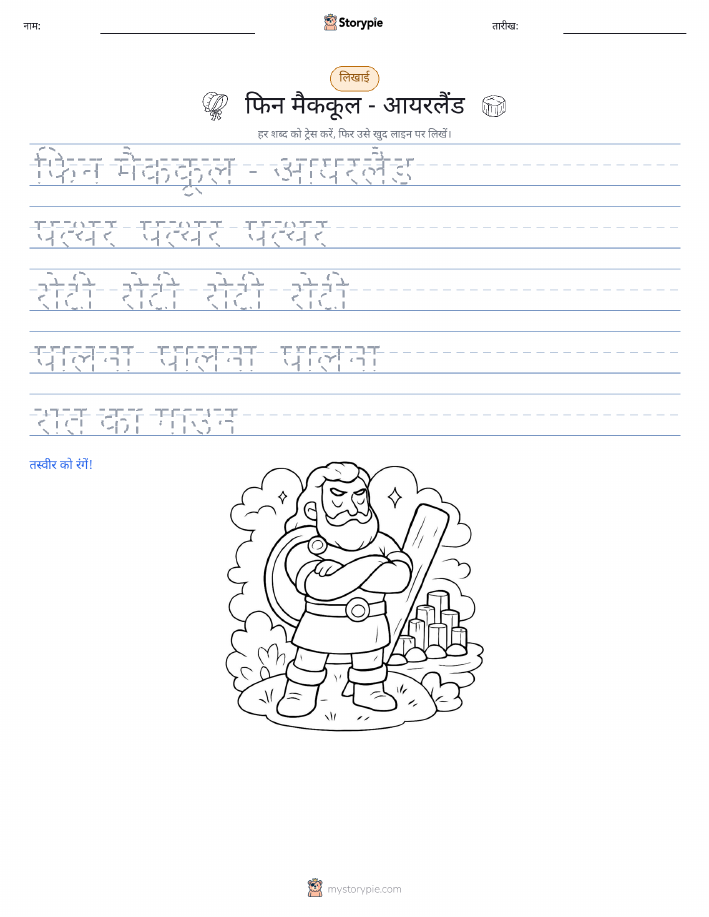 नाम:
Storypie
तारीख:
लिखाई
फिन मैककूल - आयरलैंड
हर शब्द को ट्रेस करें, फिर उसे खुद लाइन पर लिखें।
फिन मैककूल - आयरलैंड
पत्थर पत्थर पत्थर
रोटी रोटी रोटी रोटी
पालना पालना पालना
रात का गाउन
तस्वीर को रंगें!
mystorypie.com